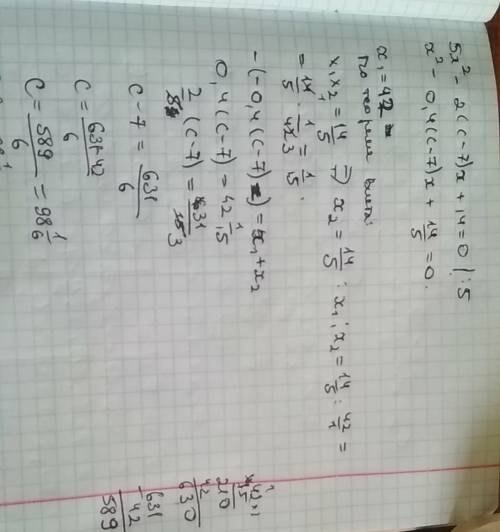 5x² - 2(c-7)x + 14 = 0 | : 5
x² - 0,4(c-7)x + 14/5 = 0.
x₁ = 42
По теореме Виета:
x₁x₂ = 14/5 ⇒ x₂ = 14/5 : x₁ ; x₂ = 14/5 : 42/1 =
= 14/5 · 1/42 = 1/15.
-(-0,4(c-7)) = x₁ + x₂
0,4(c-7) = 42 1/15
2/5 (c-7) = 631/15
c-7 = 631/6
c = 631-42/6
c = 589/6 = 98 1/6
42
15
210
42
630
631
42
589